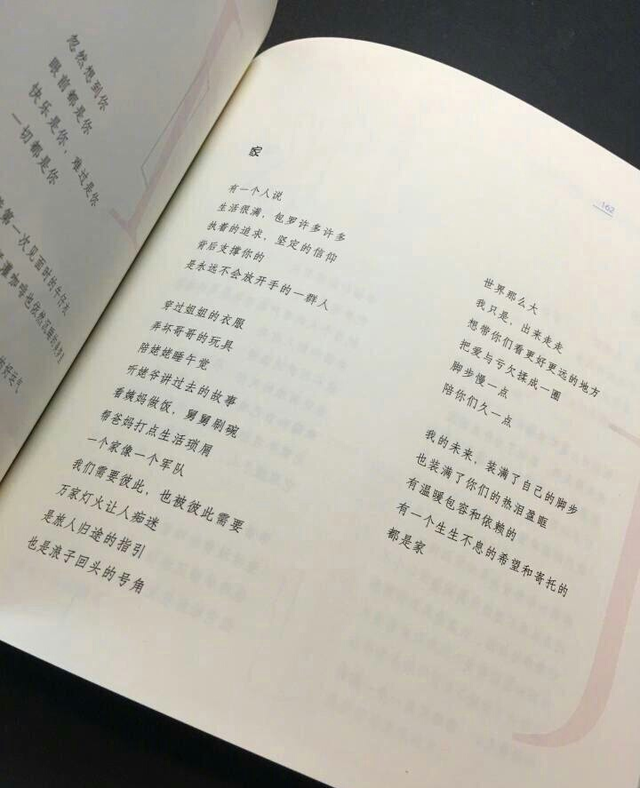 忽然想到你
眼前都是你
快乐是你，难过是你
一切都是你
第一次见面时的牛仔衣
162
家
有一个人说
生活很满，包罗许多许多
执着的追求，坚定的信仰
背后支撑你的
是永远不会放开手的一群人
穿过姐姐的衣服
弄坏哥哥的玩具
陪姥姥睡午觉
听姥爷讲过去的故事
看姨妈做饭，舅舅刷碗
帮爸妈打点生活琐屑
一个家像一个军队
我们需要彼此，也被彼此需要
万家灯火让人痴迷
是旅人归途的指引
也是浪子回头的号角
世界那么大
我只是，出来走走
想带你们看更好更远的地方
把爱与亏欠揉成一团
脚步慢一点
陪你们久一点
我的未来，装满了自己的脚步
也装满了你们的热泪盈眶
有温暖包容和依赖的
有一个生生不息的希望和寄托的
都是家